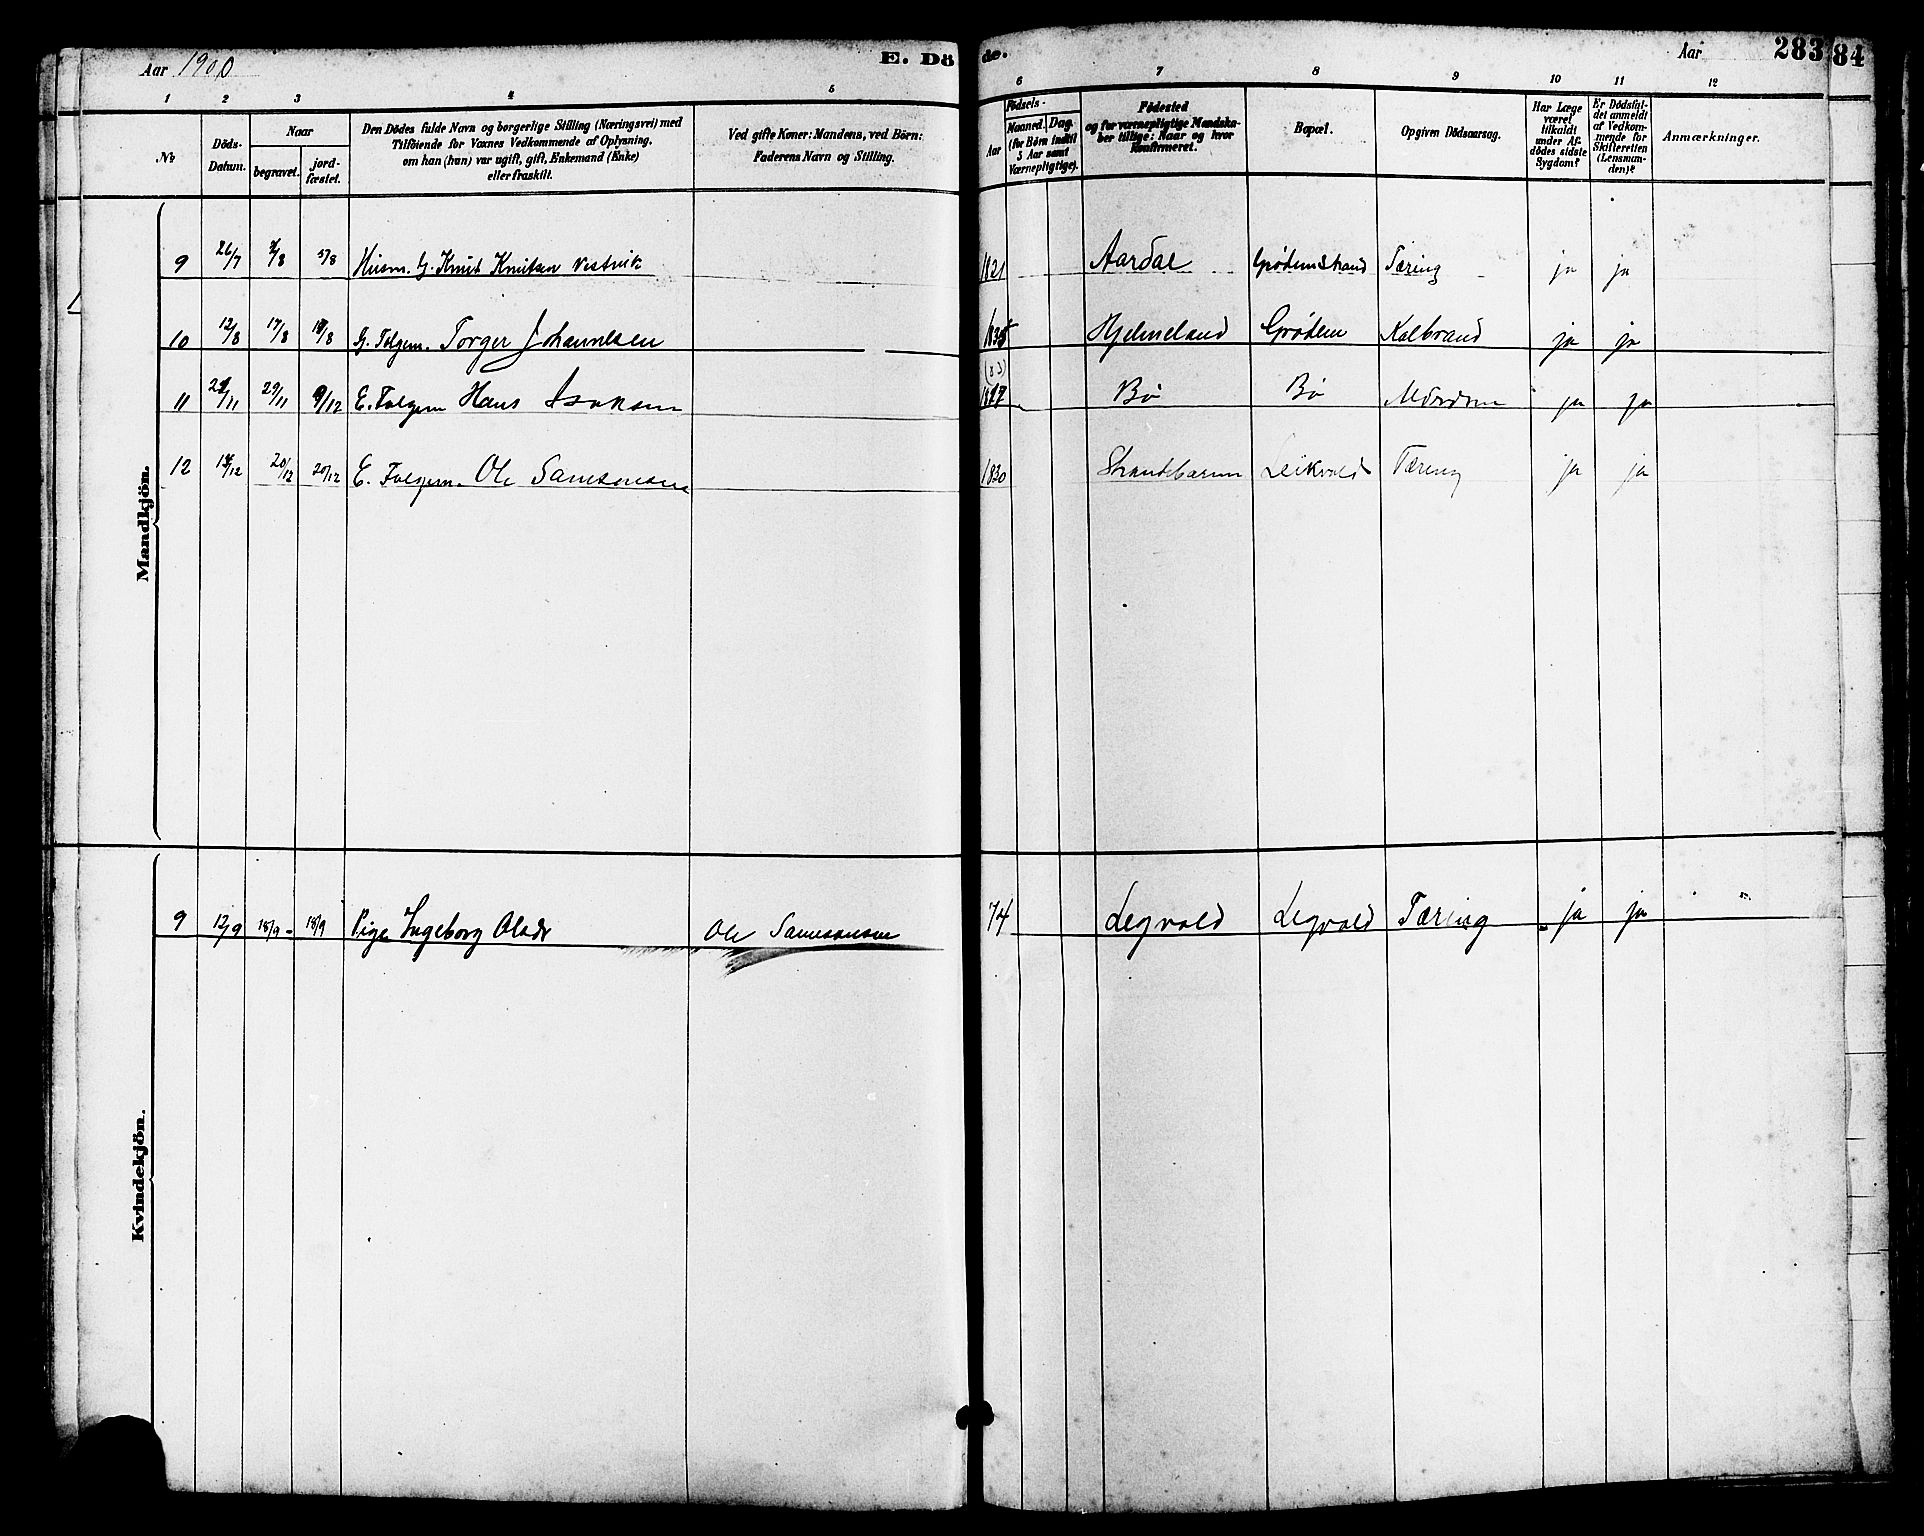 Aar 1900 E. Döde. Aar 283 84
1 2 3 4 5 6 7 8 9 10 11 12
№
Döds-Datum.
Naar
begravet.
jord-fæstet.
Den Dödes fulde Navn og borgerlige Stilling (Næringsvei) med
Tilföiende for Voxnes Vedkommende af Oplysning,
om han (hun) var ugift, gift, Enkemand (Enke)
eller fraskilt.
Ved gifte Koner: Mandens, ved Börn:
Faderens Navn og Stilling.
Fødsels-
Aar
Maaned.
Dag.
(for Börn indtil
3 Aar samt
Værnepligtige).
Födested
og for værnepligtige Mandska-
ber tillige: Naar og hvor
Konfirmeret.
Bopæl.
Opgiven Dödsaarsag.
Har Læge
været
tilkaldt
under Af-
dödes sidste
Sygdom?
Er Dödsfal-
det anmeldt
af Vedkom-
mende for
Skifteretten
(Lensman-
den)?
Anmærkninger.
Mandkjön.
9 26/7 /8 5/8 Husm. G. Knut Knutsen Vestvik 1821 Aardal Grødemstrand Tæring ja ja
10 12/8 17/8 /8 G. Folgem. Torger Johannesen Hjelmeland Grødem Kolbrand ja ja
(83)
11 /11 29/11 9/12 E. Folgem Hans Isaksen 1817 Bø Bø ja ja
12 /12 20/12 20/12 E. Folgem. Ole Samsonsen 1830 Strandebarm Leikvold Tæring ja ja
Kvindekjön.
9 12/9 18/9 18/9 Pige Ingeborg Olsdr Ole Samsonsen 74 Legvold Legvold Tæring ja ja